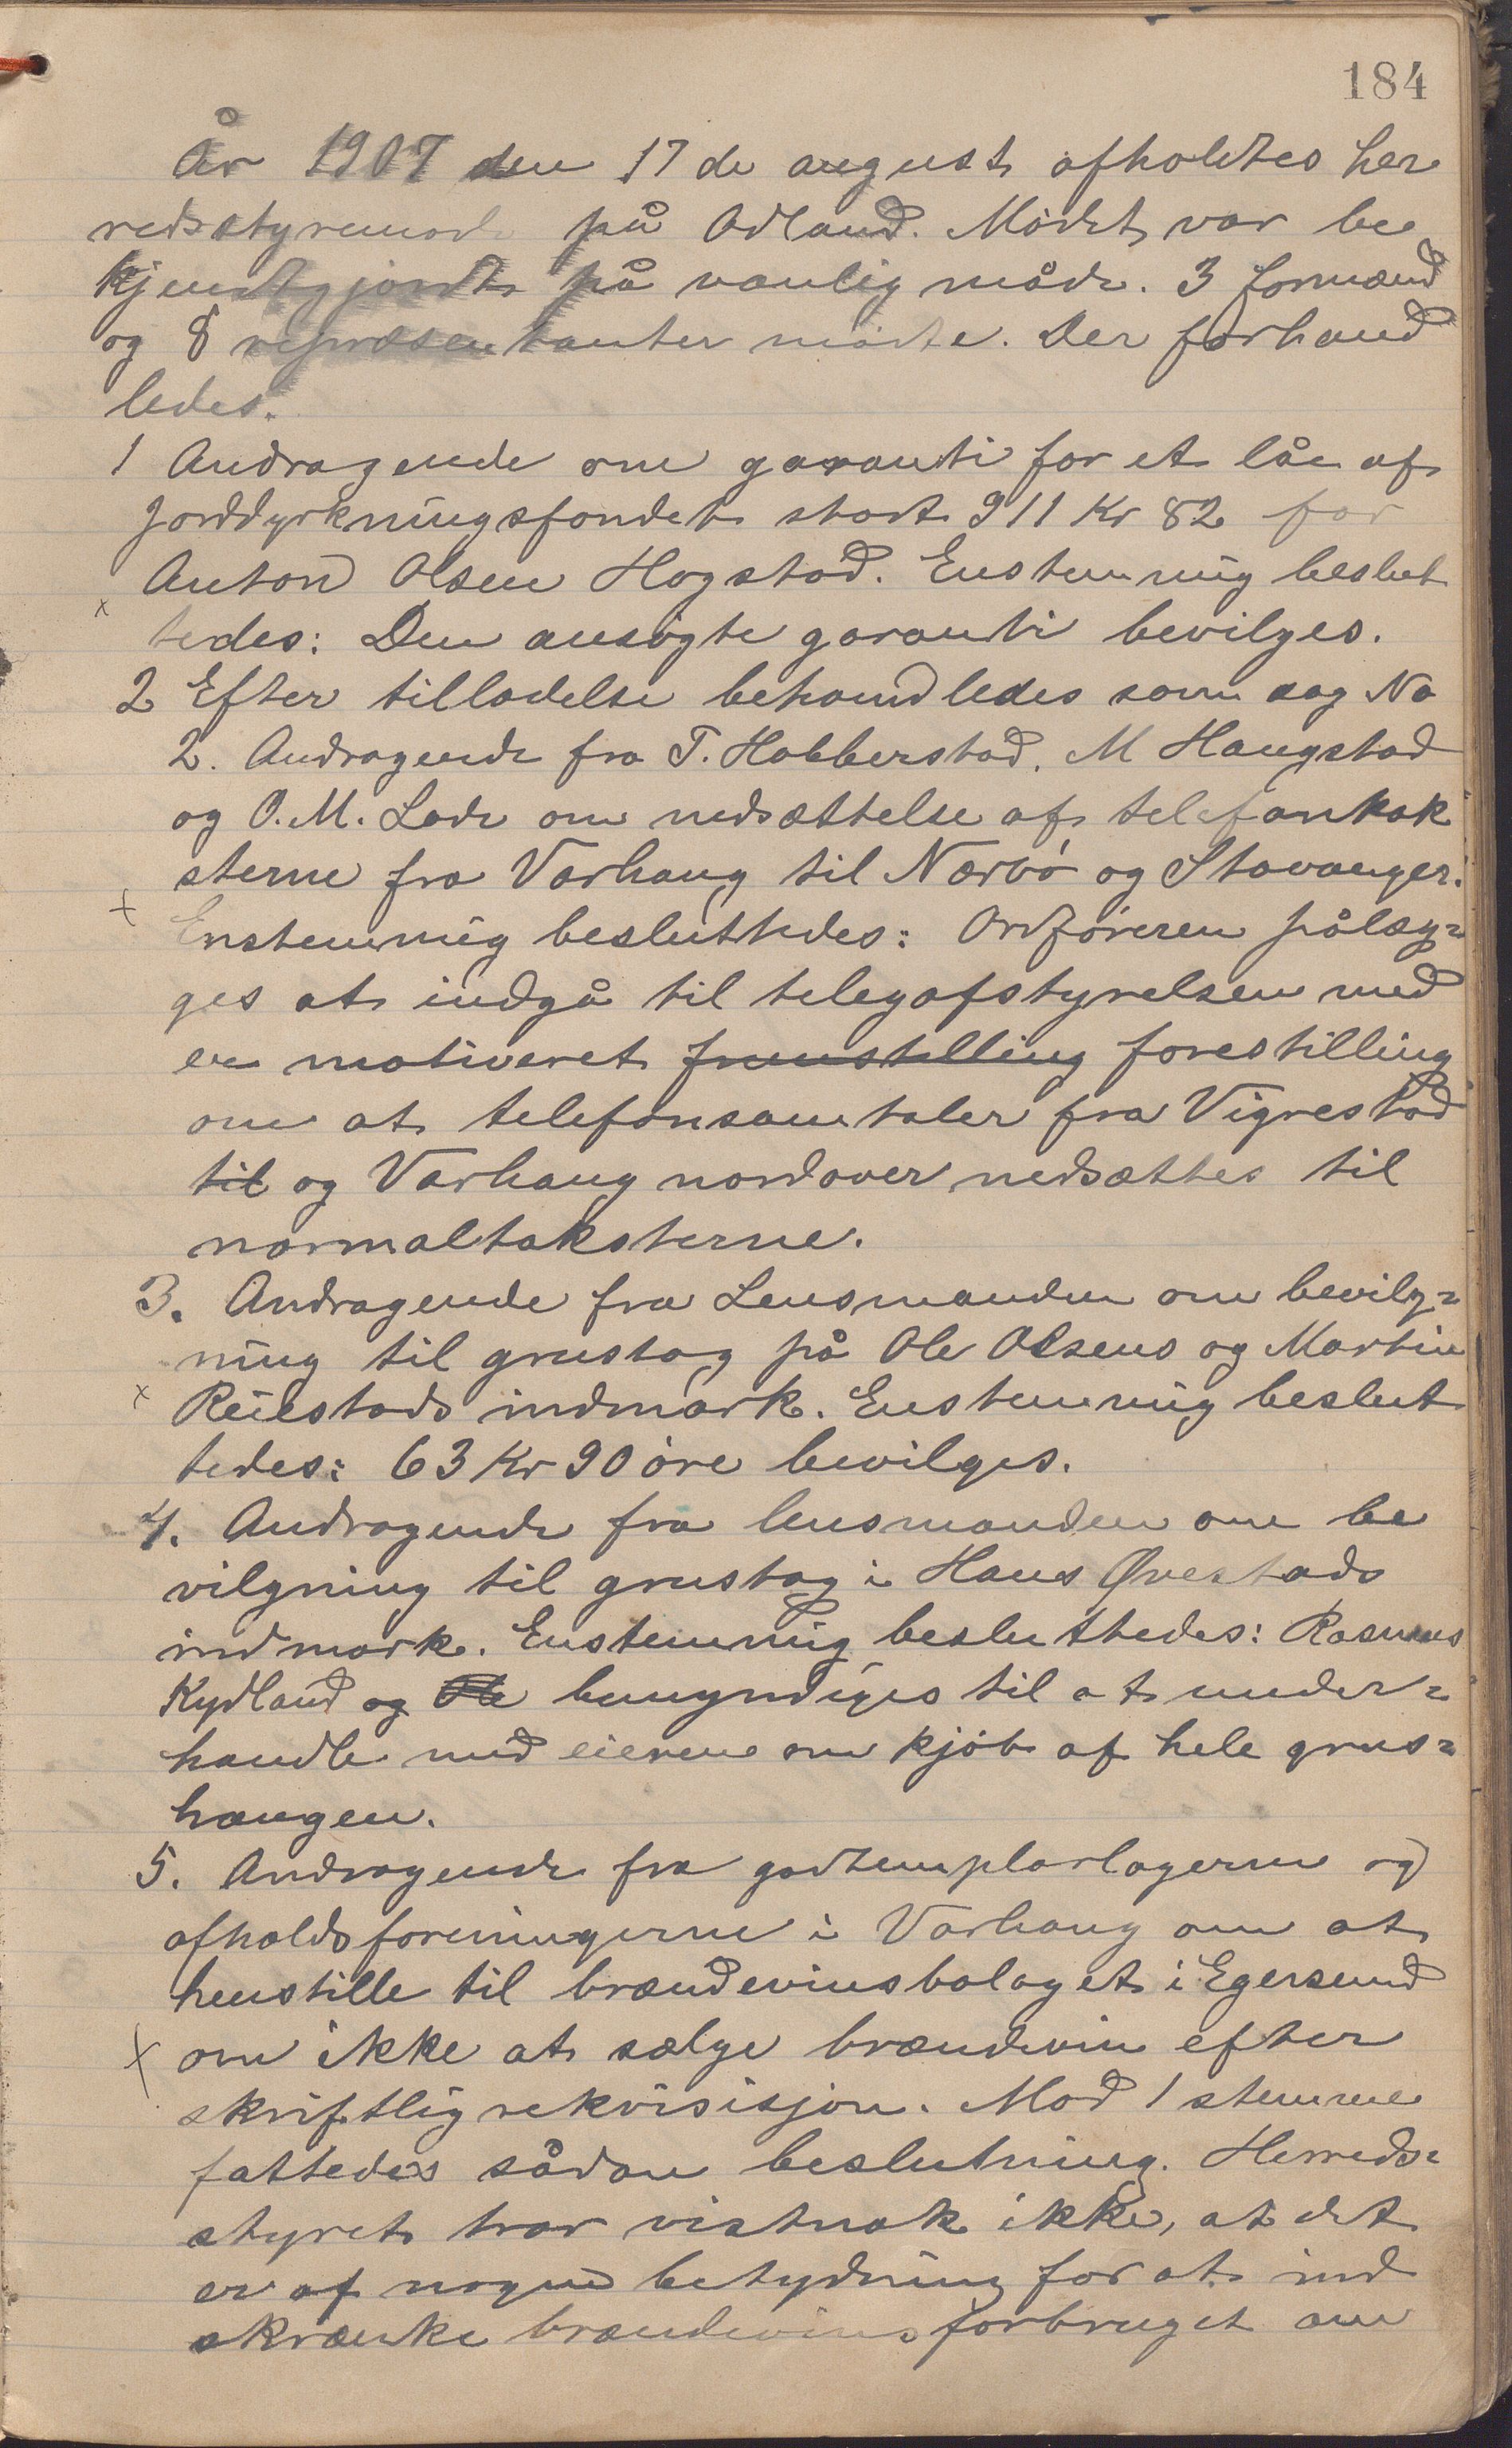 184
År 1907 den 17de august afholdtes her
redsstyremøde på Ødland. Mödet var be
kjendtgjordt på vanlig måde. 3 formænd
og 8 repræsentanter mödte. Der forhand
ledes.
1 Andragende om garanti for et lån af
Jorddyrkningsfondet stort 911 Kr 82 for
Anton Olsen Hogstad. Enstemmig beslut
x
tedes: Den ansögte garanti bevilges.
2 Efter tilladelse behandledes som sag No
2. Andragende fra T. Habberstad, M Haugstad
og O. M. Lode om nedsættelse af telefontak
sterne fra Varhaug til Nærbö og Stavanger.
+
Enstemmig besluttedes: Ordföreren pålæg=
ges at indgå til telegafstyrelsen med
en motiveret fremstilling forestilling
om at telefonsamtaler fra Vigrestad
til og Varhaug nordover nedsættes til
normaltaksterne.
3. Andragende fra Lensmanden om bevilg=
ning til grustag på Ole Olsens og Martin
x Reiestads indmark. Enstemmig beslut
tedes: 63 Kr 90 öre bevilges.
4. Andragende fra lensmanden om be
vilgning til grustag i Hans Øvestads
indmark. Enstemmig besluttedes: Rasmus
Kydland og Ole bemyndiges til at under=
handle med eieren om kjöb af hele grus=
haugen.
5. Andragende fra godtemplarlagerne og
afholdsforeningerne i Varhaug om at
henstille til brændevinsbolaget i Egersund
x om ikke at sælge brændevin efter
skriftlig rekvisisjon. Mod 1 stemme
fattedes sådan beslutning. Herreds=
styret tror vistnok ikke, at det
er af nogen betydning for at ind
skrænke brændevinsforbruget om